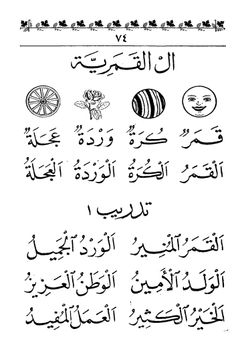 ٧٤
ال القَمَرِيَّة
قَمَرٌ كُرَةٌ وَرْدَةٌ عَجَلَةٌ
اَلْقَمَرُ اَلْكُرَةُ اَلْوَرْدَةُ اَلْعَجَلَةُ
تدريب ١
اَلْقَمَرُ الْمُنِيرُ اَلْوَرْدُ الْجَمِيلُ
اَلْوَلَدُ الْأَمِينُ اَلْوَطَنُ الْعَزِيزُ
اَلْخَيْرُ الْكَثِيرُ اَلْعَمَلُ الْمُفِيدُ